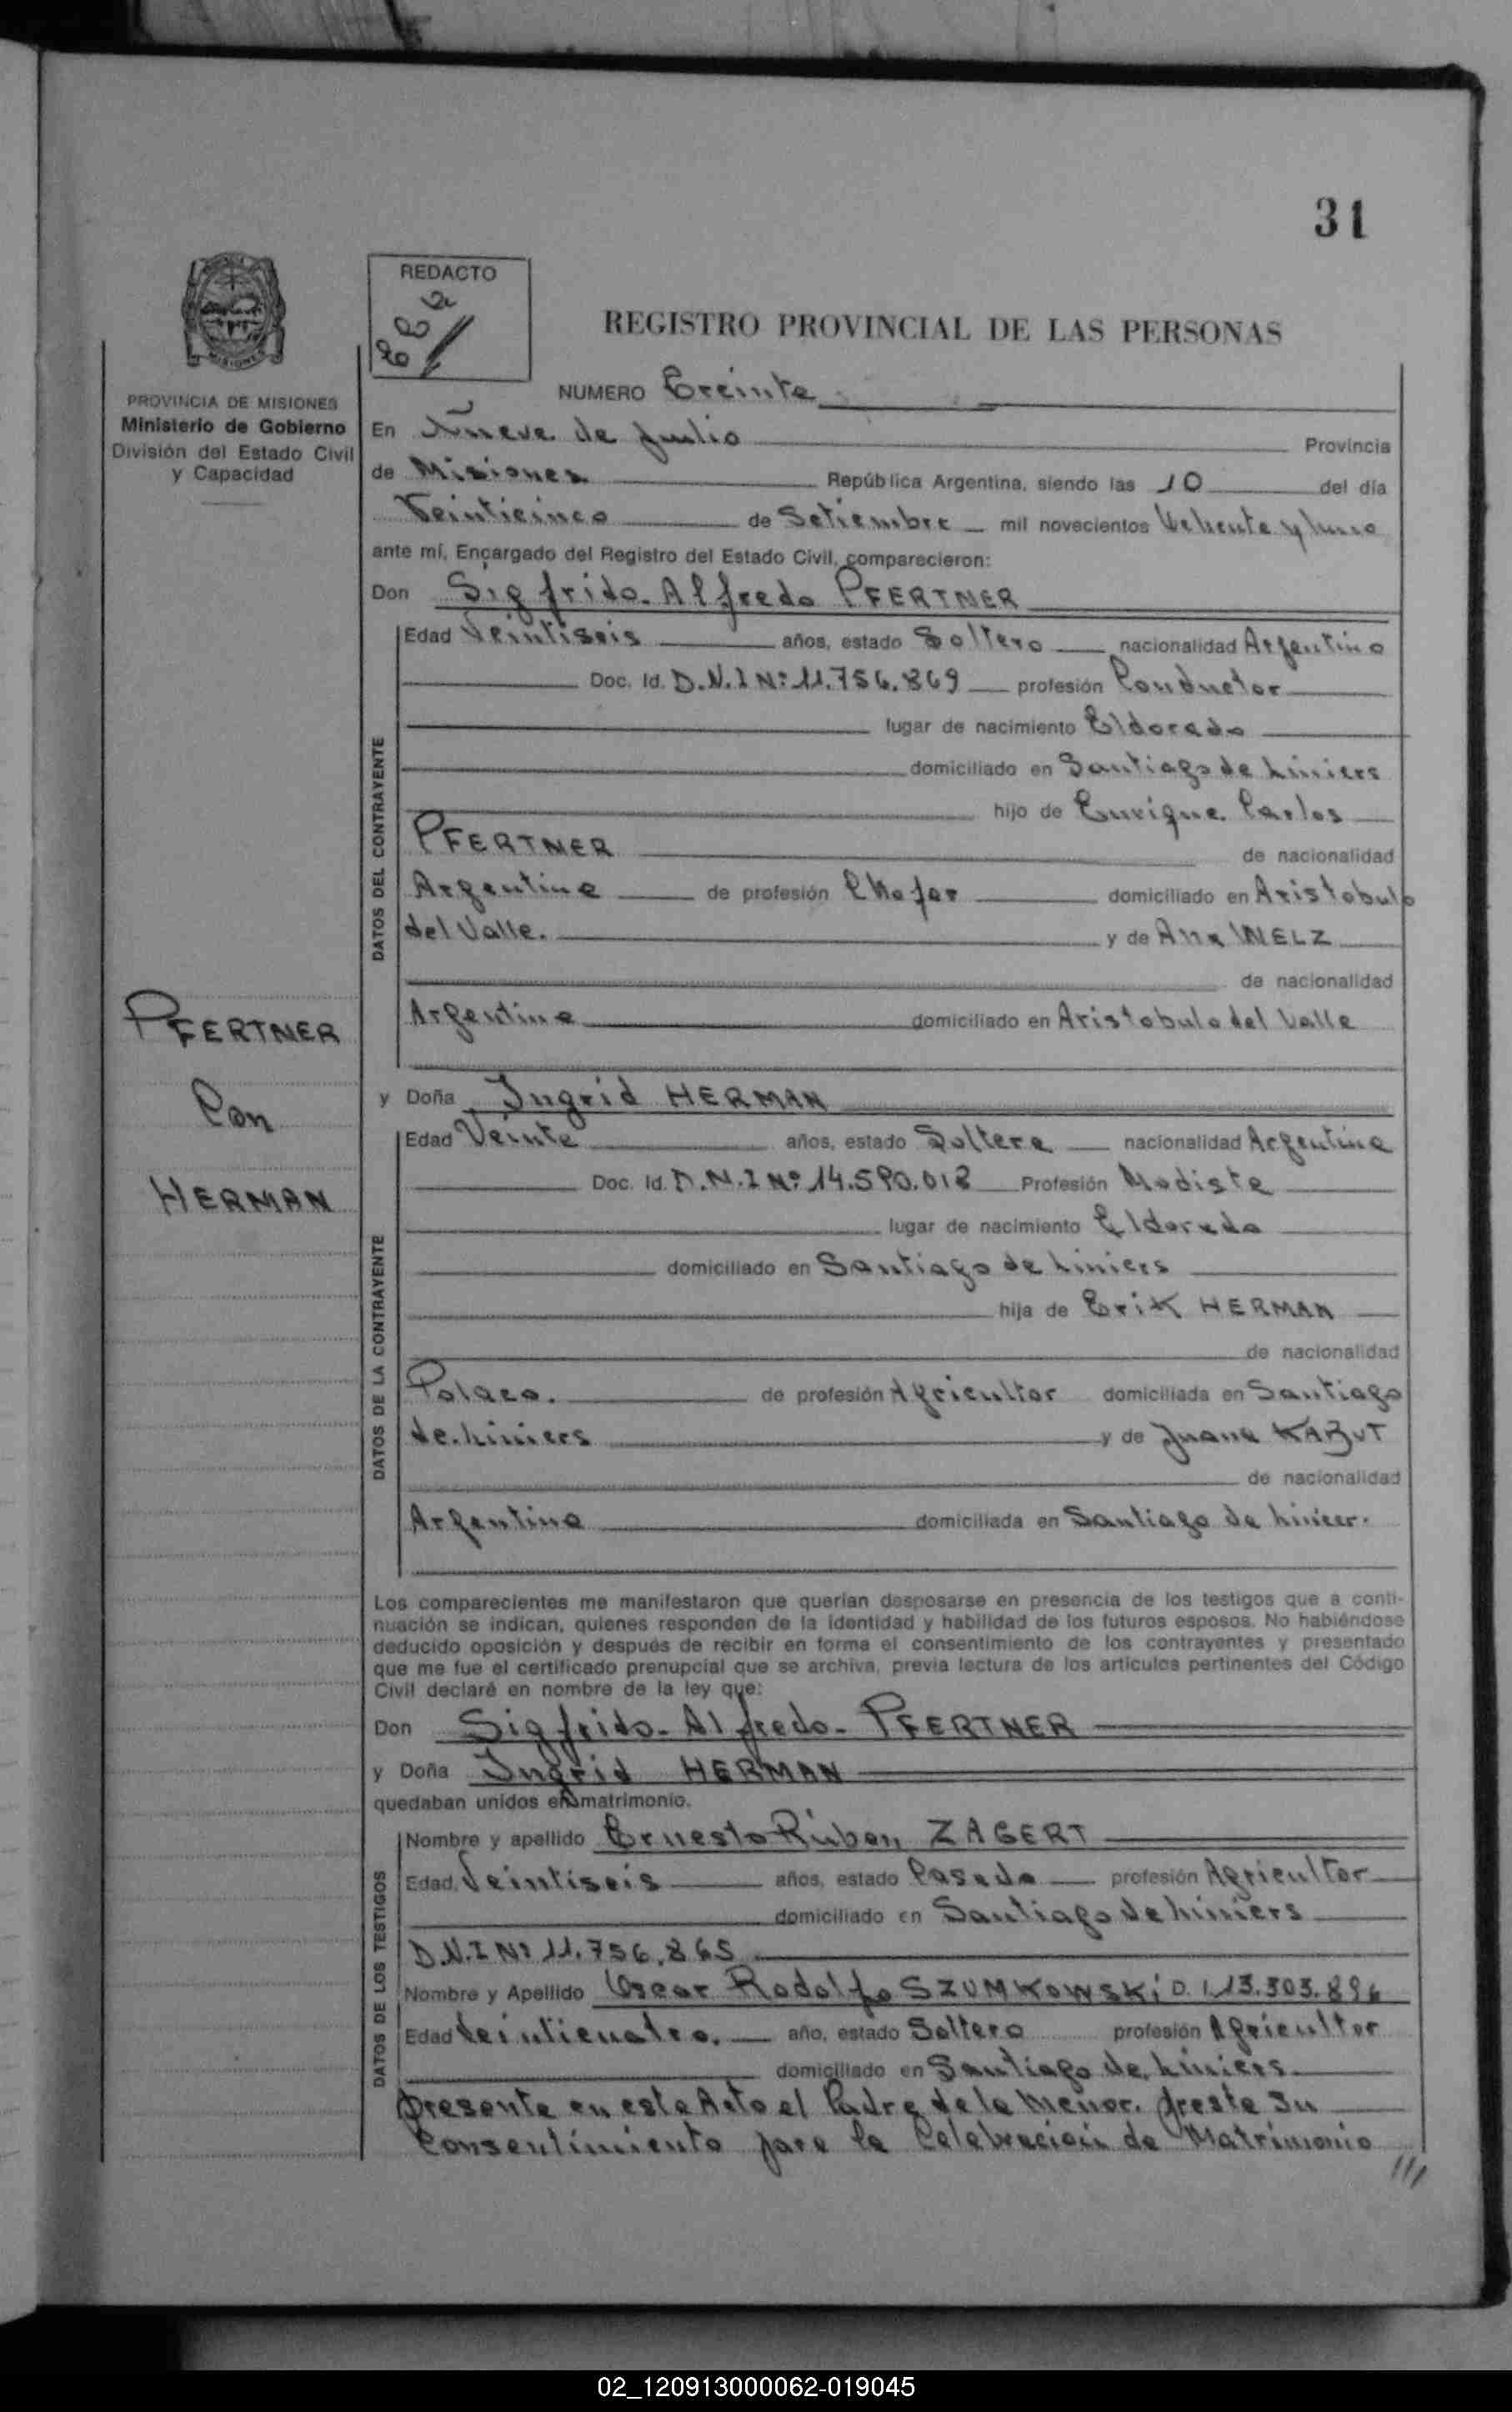 31
REDACTO
REGISTRO PROVINCIAL DE LAS PERSONAS
MISIONES
PROVINCIA DE MISIONES
Ministerio de Gobierno
División del Estado Civil
y Capacidad
NUMERO Treinta
En Nueve de Julio Provincia
de Misiones República Argentina, siendo las 10 del día
Veinticinco de Setiembre mil novecientos Ochenta y uno
ante mí, Encargado del Registro del Estado Civil, comparecieron:
Don Sigfrido Alfredo PFERTNER
DATOS DEL CONTRAYENTE
Edad Veintiseis años, estado Soltero nacionalidad Argentino
Doc. Id. D.N.I Nº 11.756.869 profesión Conductor
lugar de nacimiento Eldorado
domiciliado en Santiago de Liniers
hijo de Enrique Carlos
PFERTNER de nacionalidad
Argentina de profesión Chofer domiciliado en Aristobulo
del Valle. y de Ana WELZ
de nacionalidad
Argentina domiciliado en Aristobulo del Valle
PFERTNER
Con
HERMAN
y Doña Ingrid HERMAN
DATOS DE LA CONTRAYENTE
Edad Veinte años, estado Soltera nacionalidad Argentina
Doc. Id. D.N.I Nº 14.590.018 Profesión Modista
lugar de nacimiento Eldorado
domiciliado en Santiago de Liniers
hija de Erik HERMAN
de nacionalidad
Polaco. de profesión Agricultor domiciliada en Santiago
de Liniers y de Juana KABUT
de nacionalidad
Argentina domiciliada en Santiago de Linier.
Los comparecientes me manifestaron que querían desposarse en presencia de los testigos que a conti-
nuación se indican, quienes responden de la identidad y habilidad de los futuros esposos. No habiéndose
deducido oposición y después de recibir en forma el consentimiento de los contrayentes y presentado
que me fue el certificado prenupcial que se archiva, previa lectura de los artículos pertinentes del Código
Civil declaré en nombre de la ley que:
Don Sigfrido Alfredo PFERTNER
y Doña Ingrid HERMAN
quedaban unidos en matrimonio.
DATOS DE LOS TESTIGOS
Nombre y apellido Ernesto Rúben ZAGERT
Edad Veintiseis años, estado Casado profesión Agricultor
domiciliado en Santiago de Liniers
D.N.I Nº 11.756.865
Nombre y Apellido Oscar Rodolfo SZUMKOWSKI D.I. 13.303.896
Edad Veinticuatro. año, estado Soltero profesión Agricultor
domiciliado en Santiago de Liniers
Presente en este Acto el Padre de la Menor. Presta su
Consentimiento para la Celebración de Matrimonio
///
02_120913000062-019045